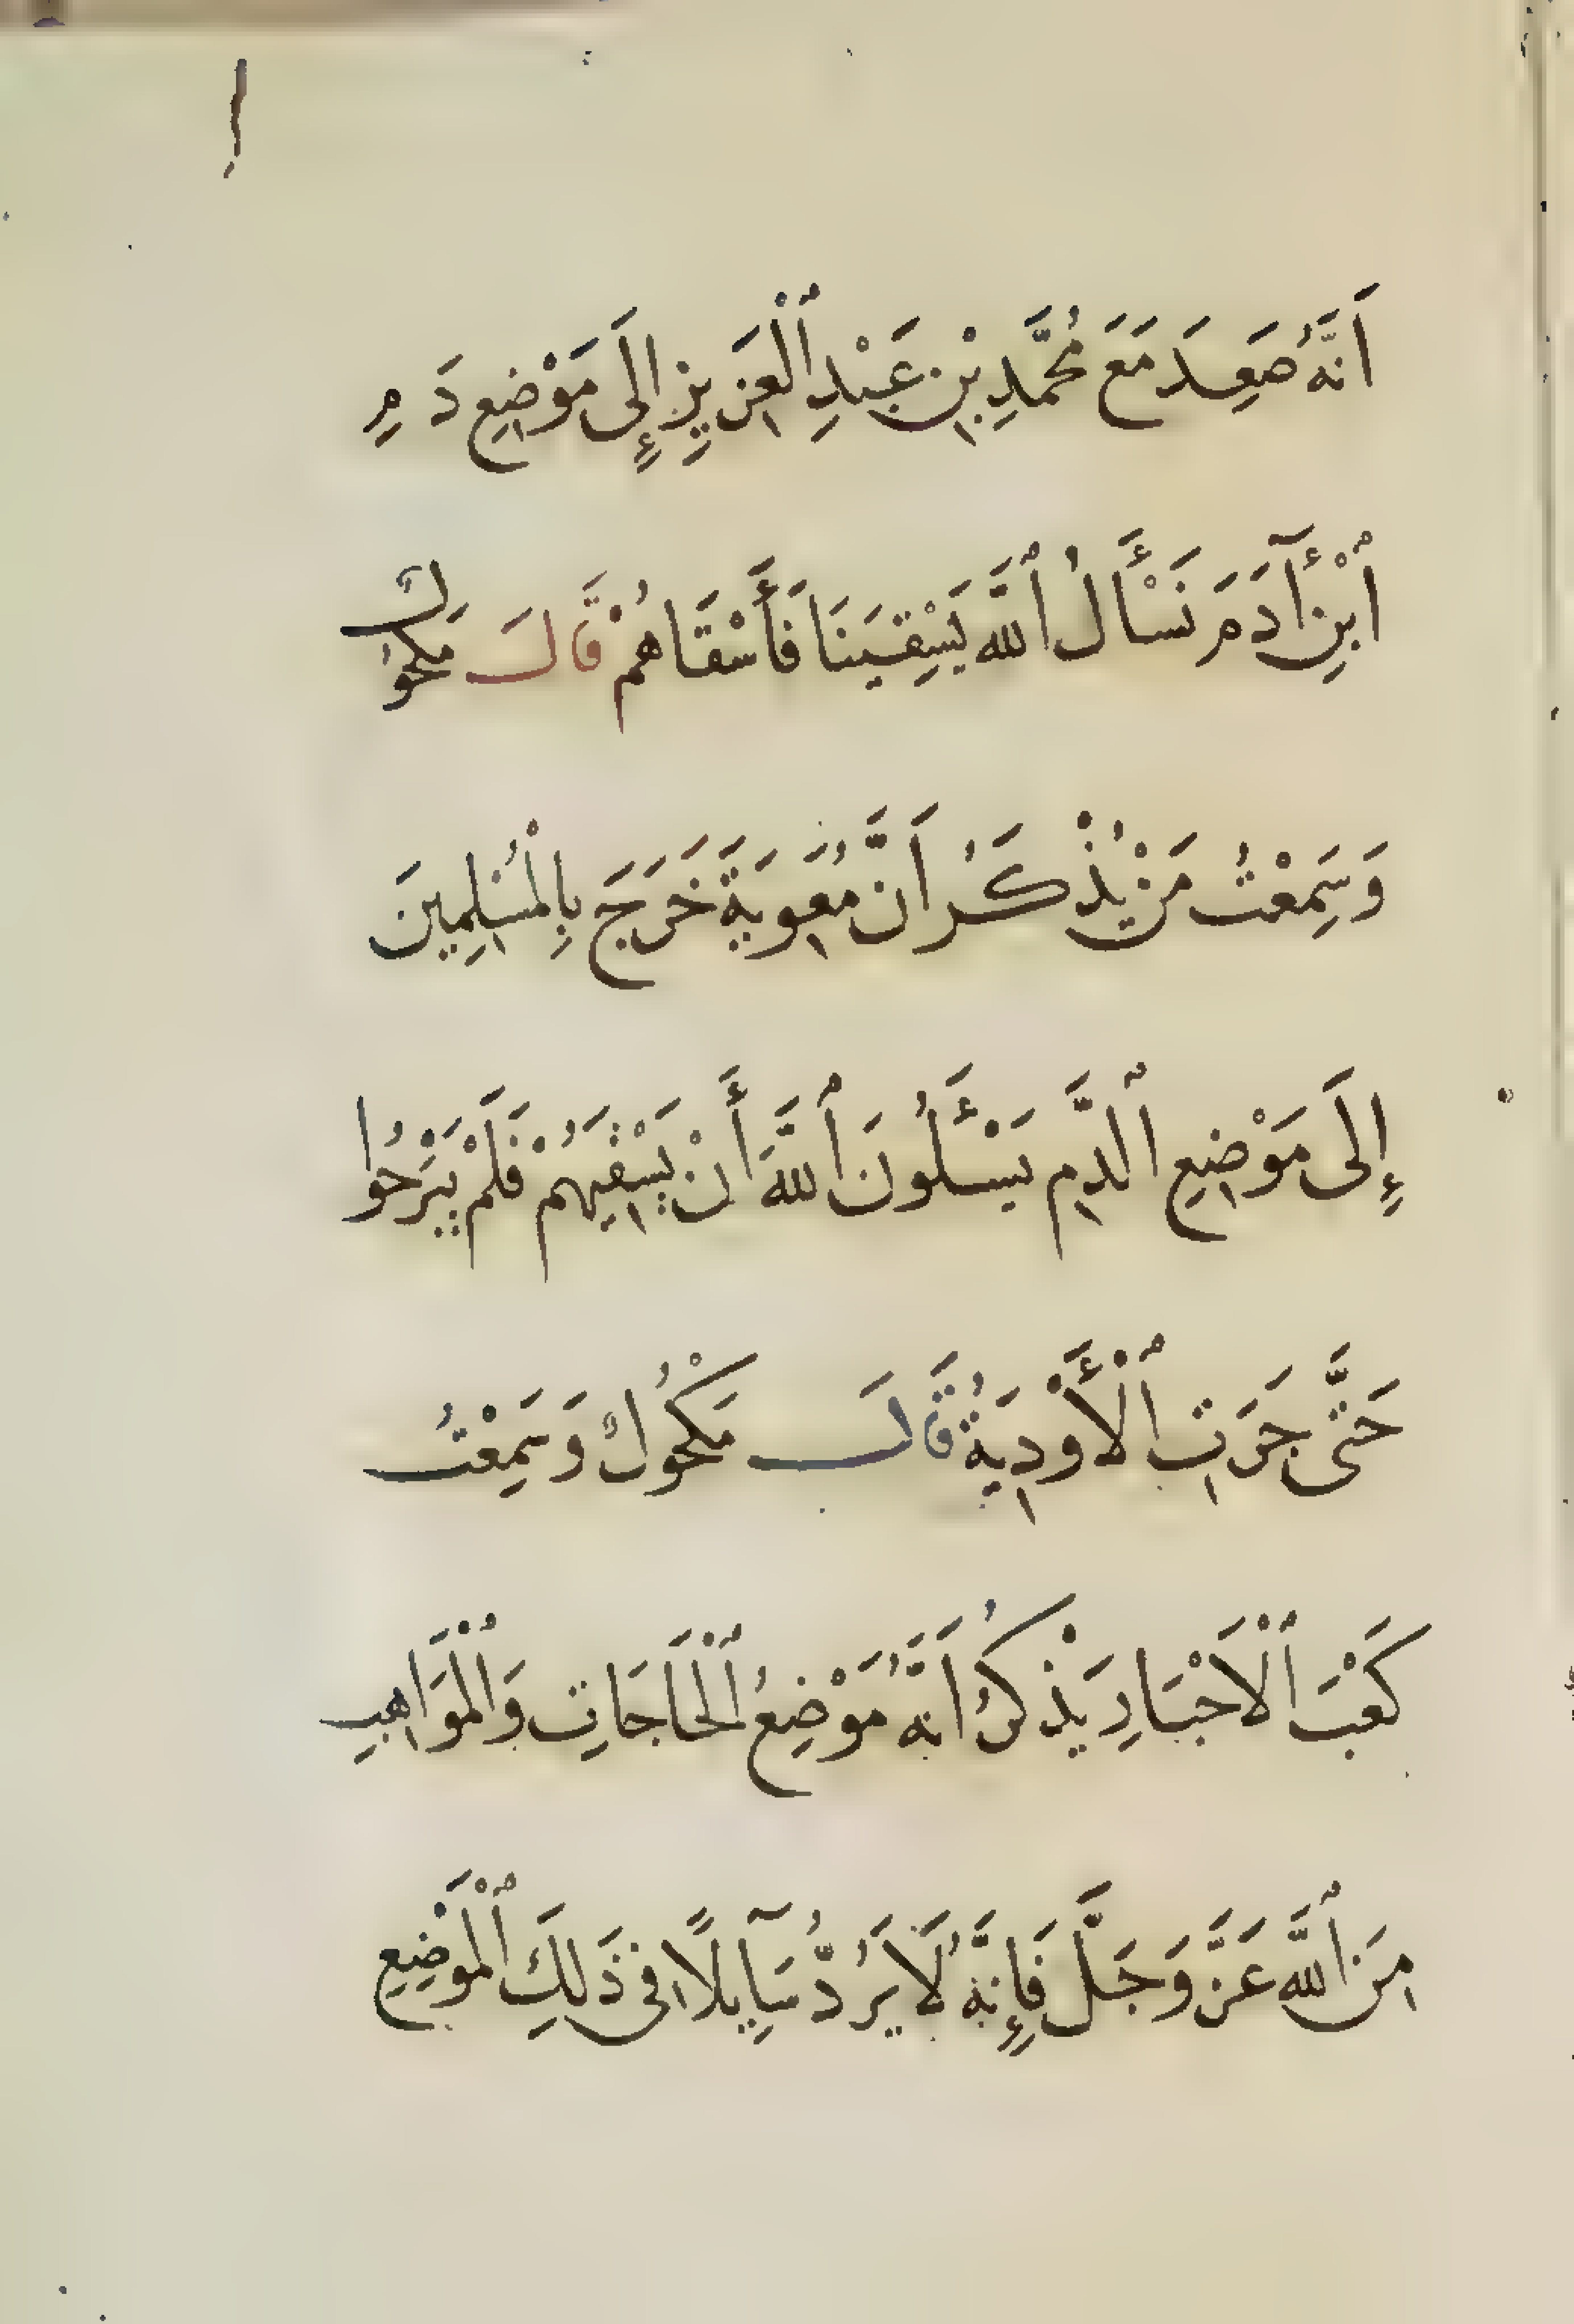 أَنَّهُ صَعِدَ مَعَ مُحَمَّدِ بْنِ عَبْدِ ٱلْعَزِيزِ إِلَى مَوْضِعِ دَمِ
ٱبْنِ آدَمَ نَسْأَلُ ٱللَّهَ يَسْقِيَنَا فَأَسْقَاهُمْ قَالَ مَكْحُولٌ
وَسَمِعْتُ مَنْ يَذْكُرُ أَنَّ مُعَوِيَةَ خَرَجَ بِالْمُسْلِمِينَ
إِلَى مَوْضِعِ ٱلدَّمِ يَسْئَلُونَ ٱللَّهَ أَنْ يَسْقِيَهُمْ فَلَمْ يَبْرَحُوا
حَتَّى جَرَتِ ٱلْأَوْدِيَةُ قَالَ مَكْحُولٌ وَسَمِعْتُ
كَعْبَ ٱلْأَحْبَارِ يَذْكُرُ أَنَّهُ مَوْضِعُ ٱلْحَاجَاتِ وَٱلْمَوَاهِبِ
مِنَ ٱللَّهِ عَزَّ وَجَلَّ فَإِنَّهُ لَا يَرُدُّ سَآيِلًا فِي ذَلِكَ ٱلْمَوْضِعِ